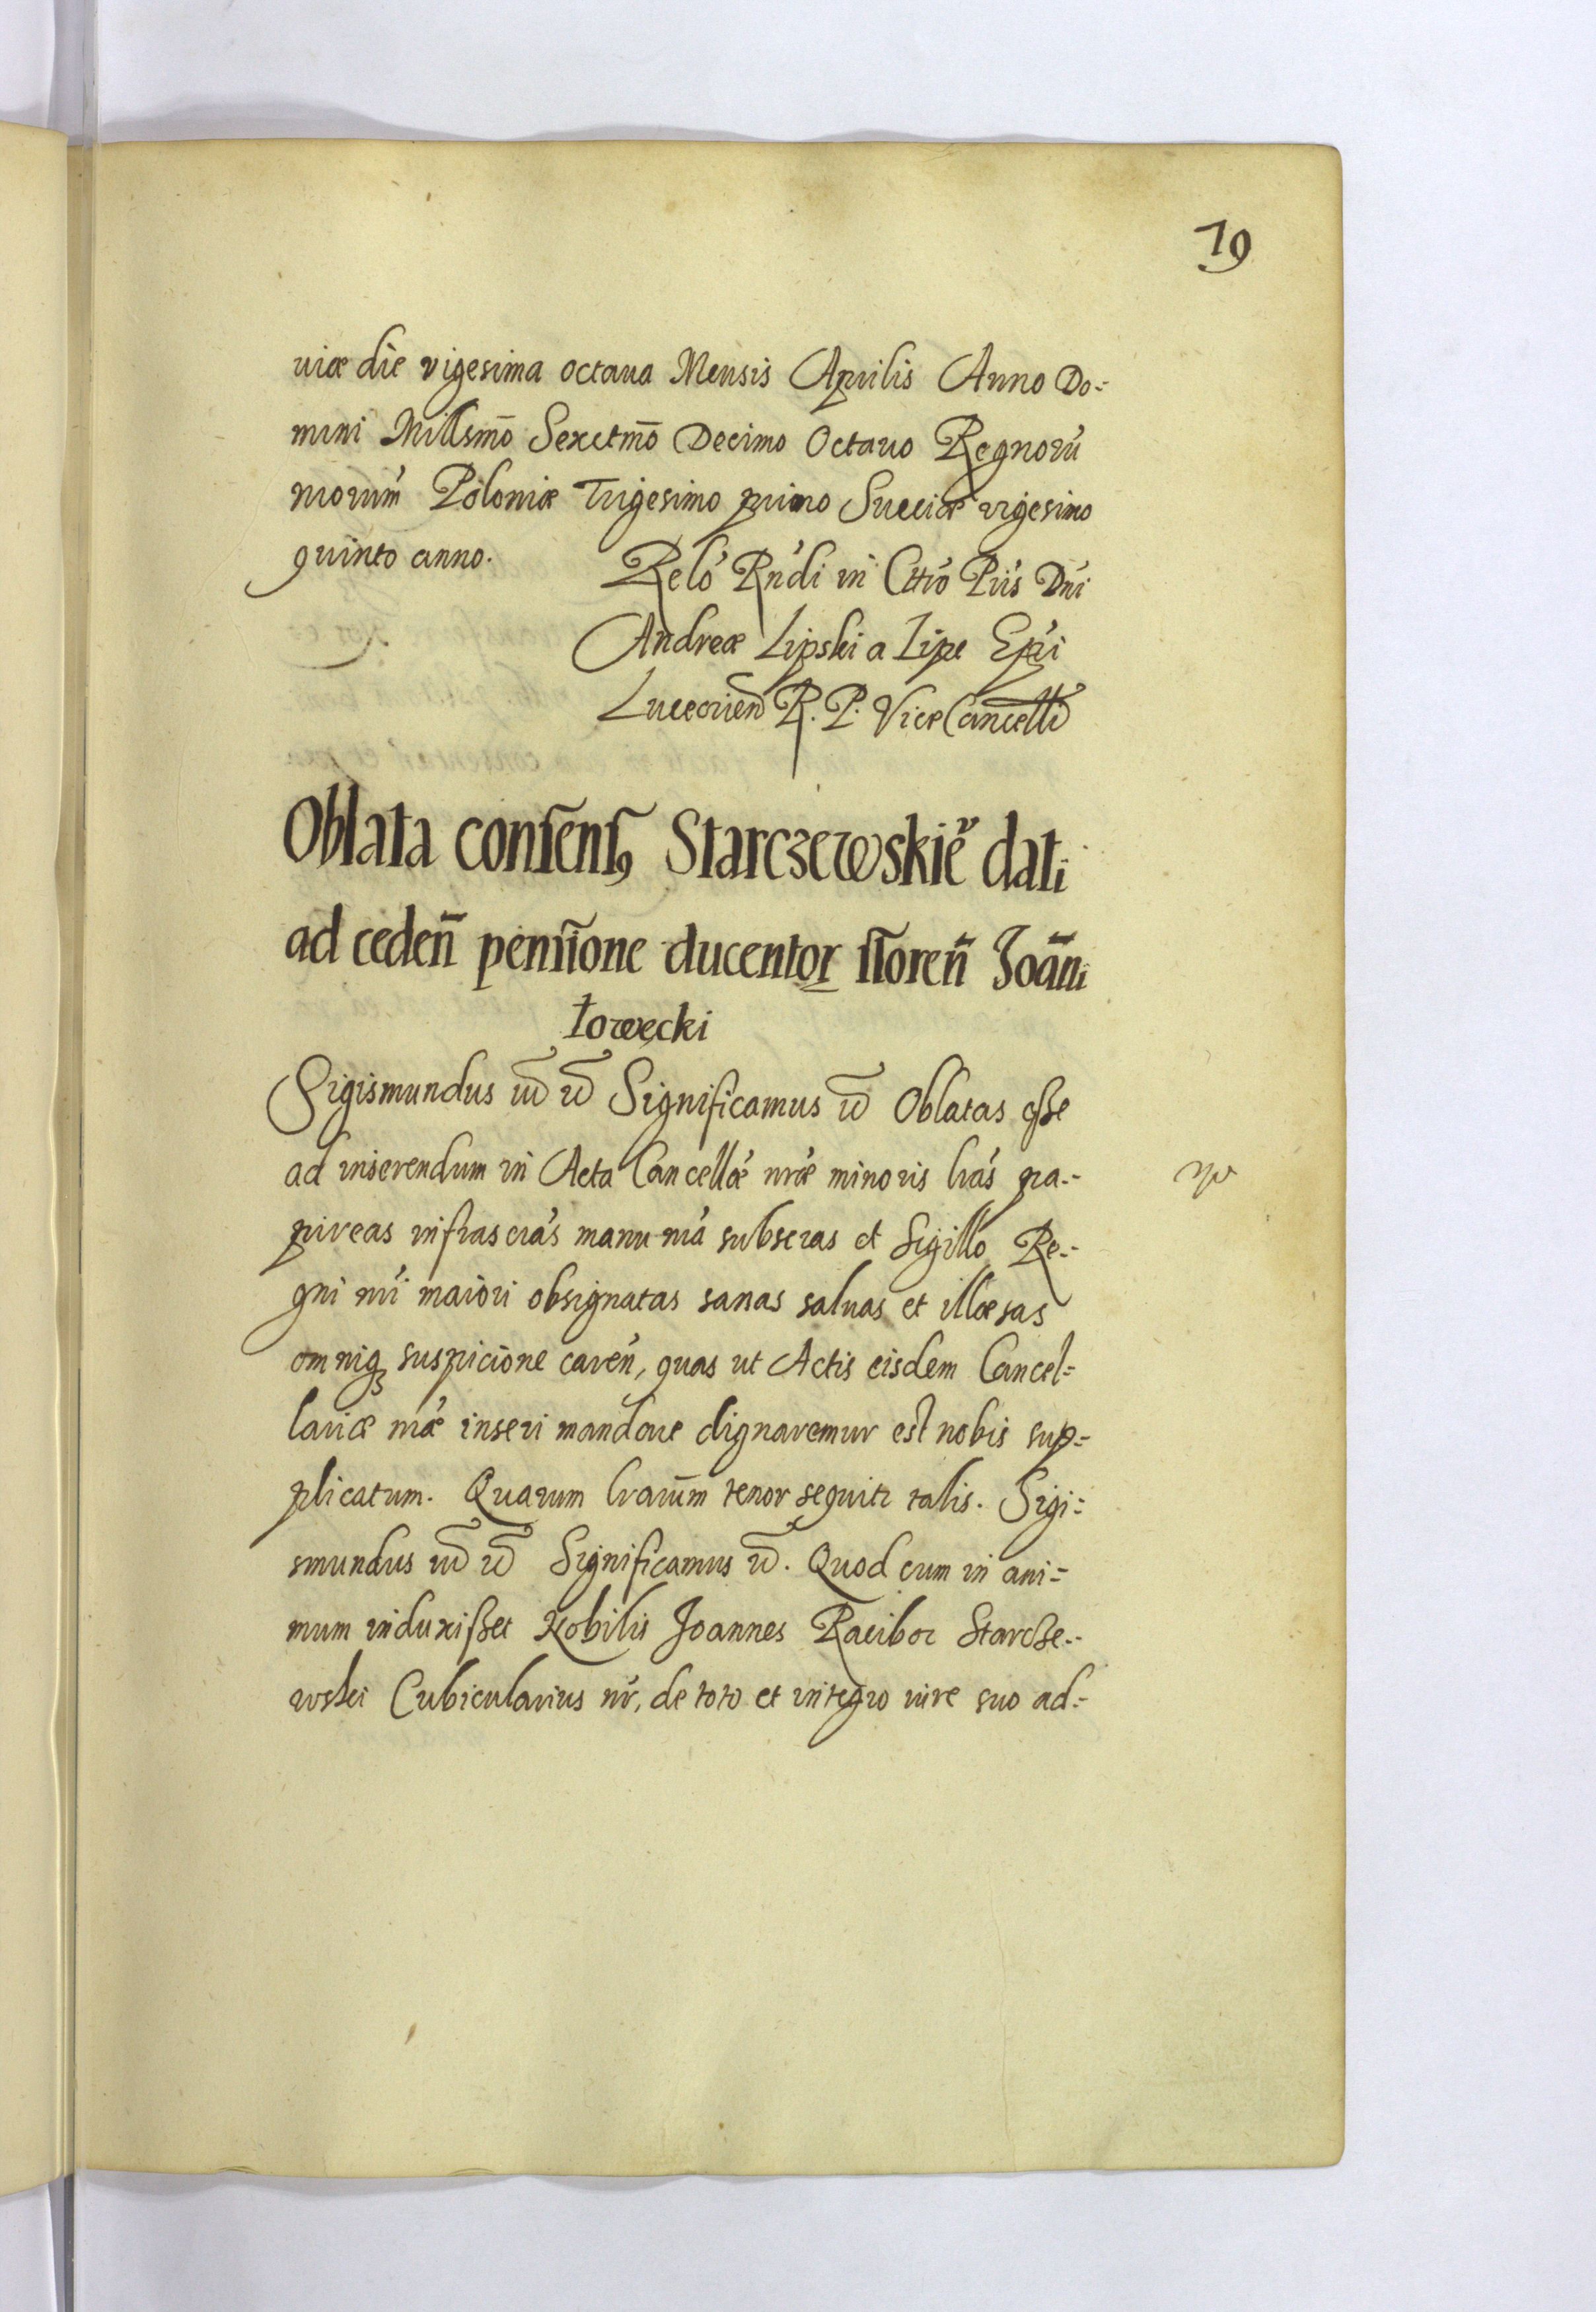 19
uiæ die vigesima octaua Mensis Aprilis Anno Do=
mini Millsmō Sexctmō Decimo Octauo Regnorú
nrorúm Poloniæ Trigesimo primo Sueciæ vigesimo
quinto anno.
Reló Rńdi in Chró Pris Dńi
Andreæ Lipski a Lipe Epi
Luceorien R. P. Vice Cancelli
Oblata consens9 Starczewskie dati
ad cedeñ pensione ducentor floreñ Joāni
Łowęcki
Sigismundus etc etc Significamus etc Oblatas esse
ad inserendum in Acta Cancellæ nræ minoris lrás pa=
pireas infrascrás manu nrá subscras et Sigilló Re=
gni nri maiori obsignatas sanas saluas et illæsas
omniq3 suspicione careń, quas ut Actis eisdem Cancel=
lariæ nræ inseri mandare dignaremur est nobis sup=
plicatum. Quarum lrarum tenor sequitr talis. Sigi=
smundus etc etc Significamus etc. Quod cum in ani=
mum induxisset Nobilis Joannes Racibor Starcze=
wski Cubicularius nr, de toto et integro iure suo ad=